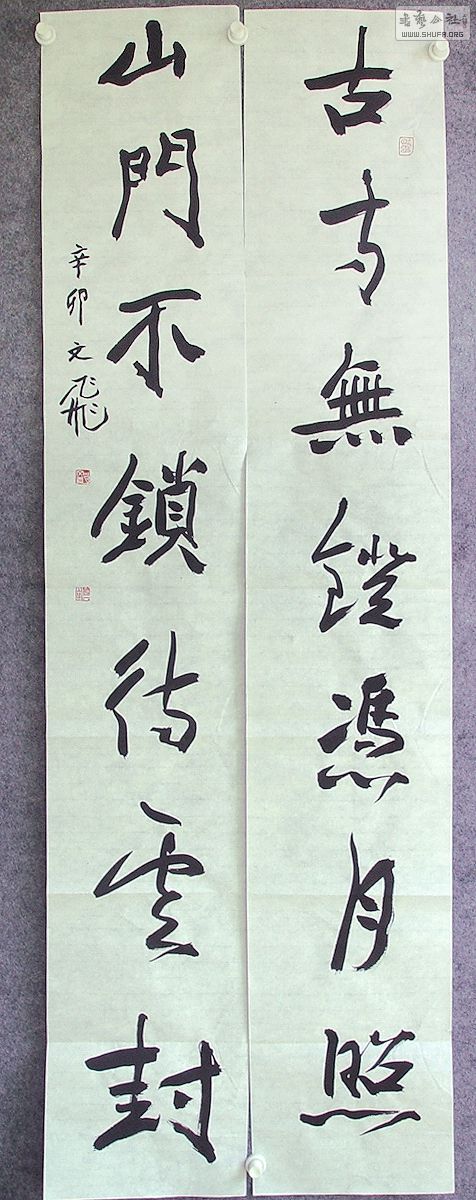 古寺無鐙憑月照
山門不鎖待雲封
辛卯文飛
書藝公社
WWW.SHUFA.ORG